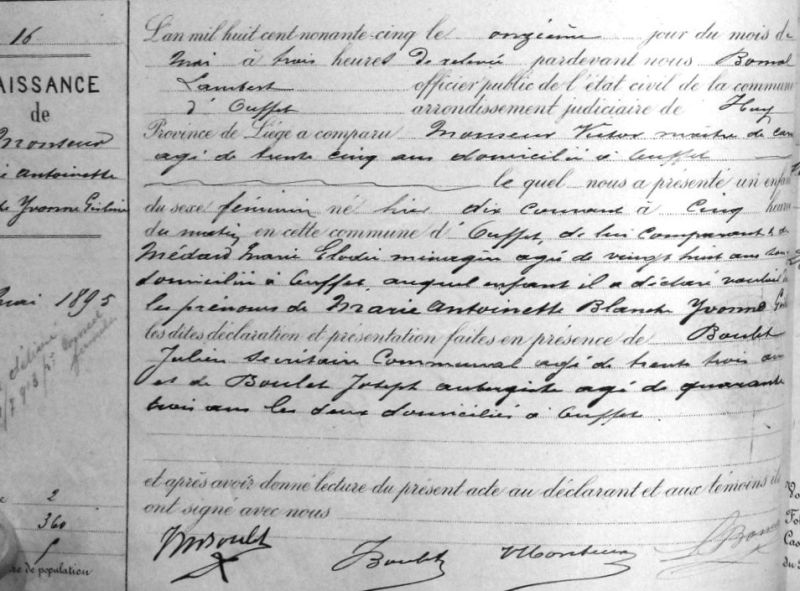 16
AISSANCE
de
Monseur
ie Antoinette
Yvonne
mai 1895
2
360
re de population
L'an mil huit cent nonante-cinq le onzième jour du mois de
Mai à trois heures de relevée pardevant nous Bomal
Lambert officier public de l'état civil de la commune
d'Ouffet arrondissement judiciaire de Huy
Province de Liège a comparu Monseur Victor maître de car
agé de trente cinq ans domicilié à Ouffet
le quel nous a présenté un enfan
du sexe féminin né hier dix courant à cinq heure
du matin en cette commune d'Ouffet, de lui comparant & de
Médard Marie Elodie ménagère agée de vingt huit ans son
domicilié à Ouffet, auquel enfant il a déclaré vouloir
les prénoms de Marie Antoinette Blanche Yvonne
les dites déclaration et présentation faites en présence de Boulet
Julien secrétaire Communal agé de trente trois ans
et de Boulet Joseph aubergiste agé de quarante
trois ans les deux domiciliés à Ouffet.
et après avoir donné lecture du présent acte au déclarant et aux témoins ils
ont signé avec nous
Boulet
Boulet
VMonseur
Bomal